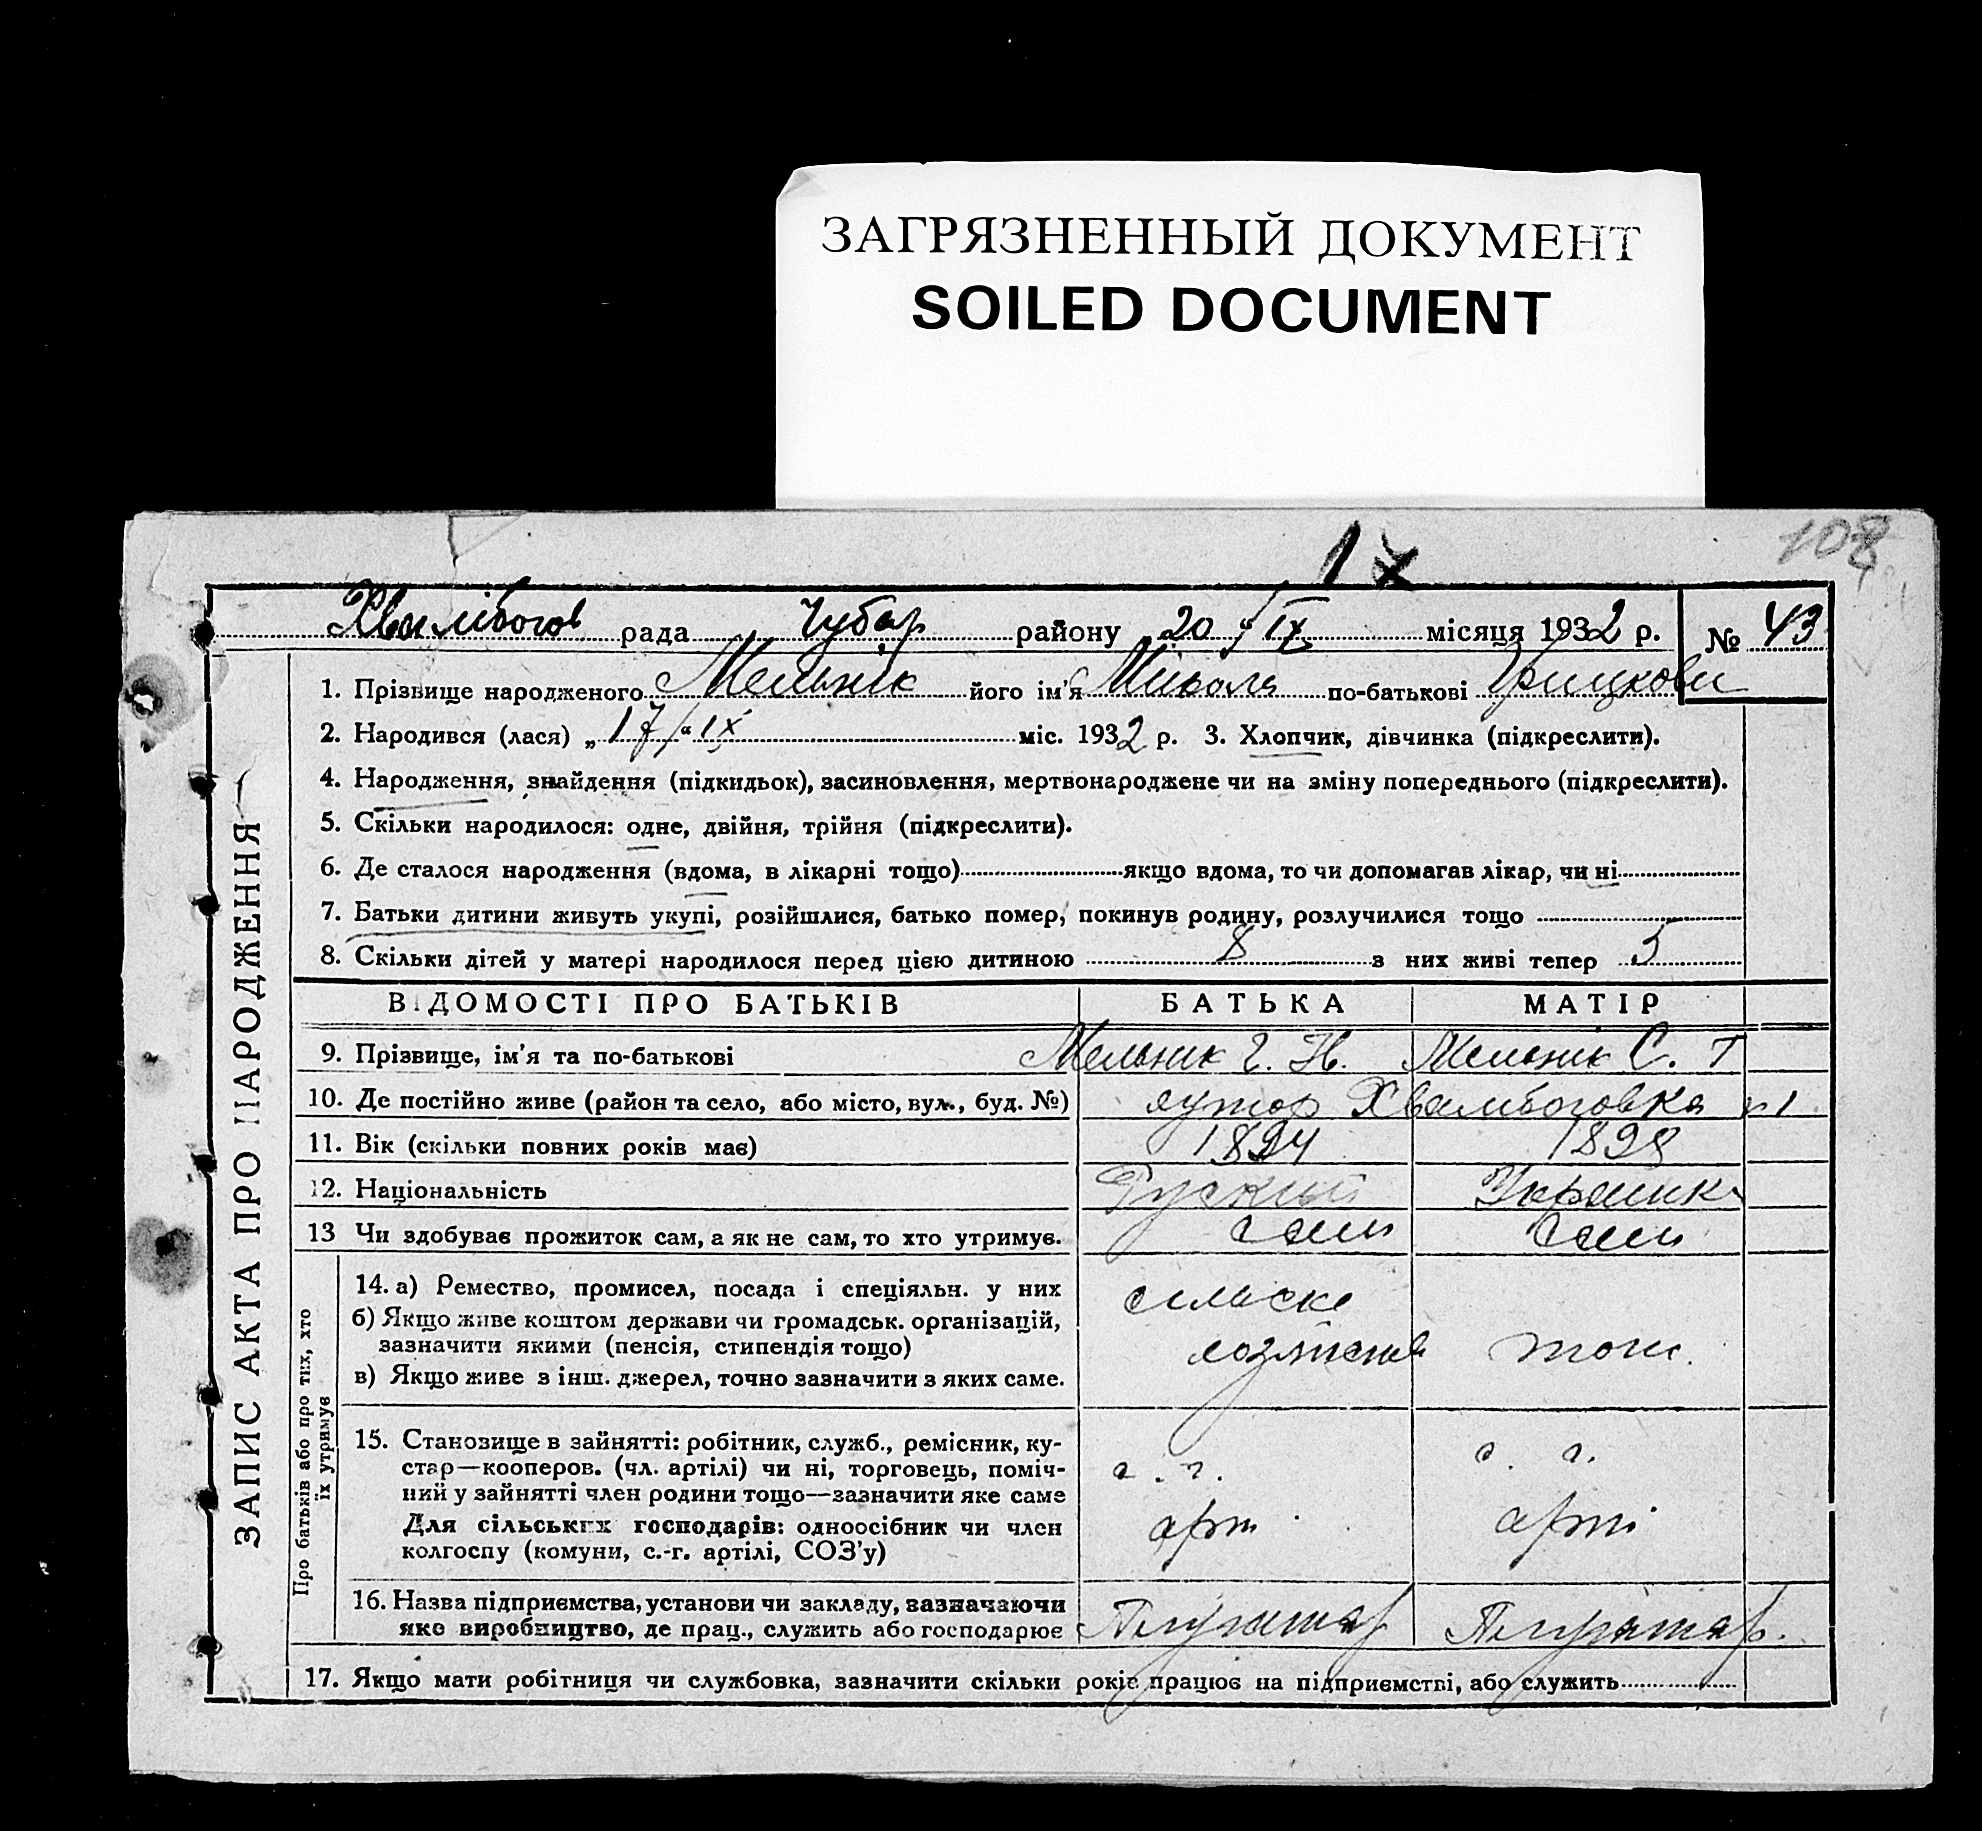 ЗАГРЯЗНЕННЫЙ ДОКУМЕНТ
SOILED DOCUMENT
1 х
108
Хвалібогов рада Чубар району 20 " IX місяця 1932 р. № 43
ЗАПИС АКТА ПРО НАРОДЖЕННЯ
1. Прізвище народженого Мельнік його ім'я Мікола по-батькові Грицкови
2. Народився (лася) „ 17 " IX міс. 1932 р. 3. Хлопчик, дівчинка (підкреслити).
4. Народження, знайдення (підкидьок), засиновлення, мертвонароджене чи на зміну попереднього (підкреслити).
5. Скільки народилося: одне, двійня, трійня (підкреслити).
6. Де сталося народження (вдома, в лікарні тощо) якщо вдома, то чи допомагав лікар, чи ні
7. Батьки дитини живуть укупі, розійшлися, батько помер, покинув родину, розлучилися тощо
8. Скільки дітей у матері народилося перед цією дитиною 8 з них живі тепер 5
ВІДОМОСТІ ПРО БАТЬКІВ БАТЬКА МАТІР
9. Прізвище, ім'я та по-батькові Мельник Г. Н. Мельнік С. Т
10. Де постійно живе (район та село, або місто, вул., буд. №) хутор Хвалибоговка
11. Вік (скільки повних років має) 1894 1898
12. Національність Руский Украинка
13 Чи здобуває прожиток сам, а як не сам, то хто утримує. сам сам
Про батьків або про тих, хто
їх утримує
14. а) Ремество, промисел, посада і спеціяльн. у них сільске
б) Якщо живе коштом держави чи громадськ. організацій,
зазначити якими (пенсія, стипендія тощо) тож.
в) Якщо живе з інш. джерел, точно зазначити з яких саме.
15. Становище в зайнятті: робітник, служб., ремісник, ку-
стар—кооперов. (чл. артілі) чи ні, торговець, поміч- с. г. с. г.
ний у зайнятті член родини тощо—зазначити яке саме
Для сільських господарів: одноосібник чи член арт. арті
колгоспу (комуни, с.-г. артілі, СОЗ'у)
16. Назва підприємства, установи чи закладу, зазначаючи
яке виробництво, де прац., служить або господарює
17. Якщо мати робітниця чи службовка, зазначити скільки років працює на підприємстві, або служить